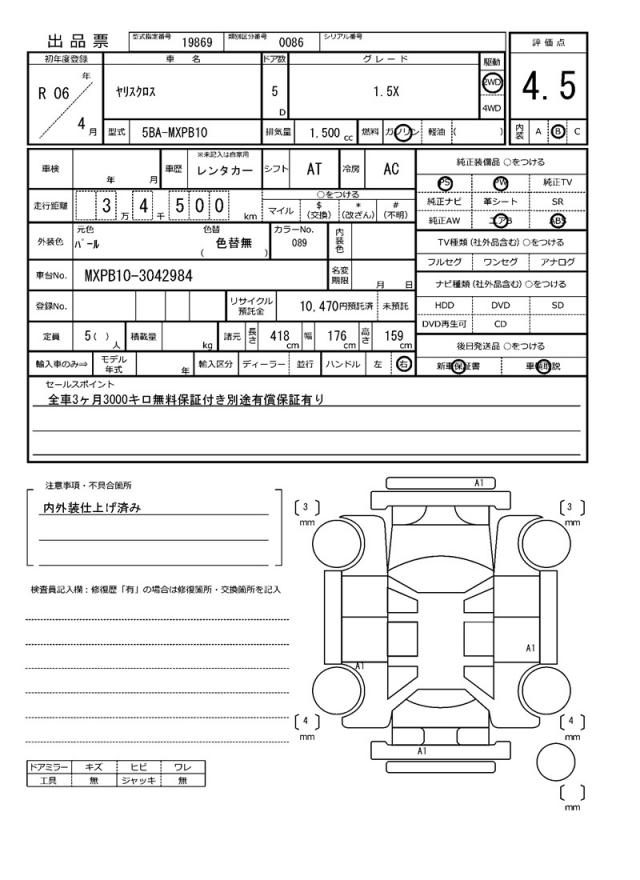 出品票 型式指定番号 19869 類別区分番号 0086 シリアル番号
評価点
4.5
内装 A B C
初年度登録 車名 ドア数 グレード 駆動
R 06 年 4 月
ヤリスクロス 5 D 1.5X 2WD
4WD
型式 5BA-MXPB10 排気量 1.500 cc 燃料 ガソリン 軽油 ( )
車検 年 月 車歴 ※未記入は自家用 レンタカー シフト AT 冷房 AC
走行距離 3 万 4 千 5 0 0 km
○をつける
マイル $(交換) *(改ざん) #(不明)
外装色 元色 パール 色替 色替無 ( ) カラーNo. 089 内装色
車台No. MXPB10-3042984 名変期限 月 日
登録No. リサイクル預託金 10,470円預託済 未預託
定員 5( )人 積載量 kg 諸元 長さ 418 cm 幅 176 cm 高さ 159 cm
輸入車のみ⇒ モデル年式 年 輸入区分 ディーラー 並行 ハンドル 左 右
純正装備品 ○をつける
PS PW 純正TV
純正ナビ 革シート SR
純正AW エアB ABS
TV種類(社外品含む)○をつける
フルセグ ワンセグ アナログ
ナビ種類(社外品含む)○をつける
HDD DVD SD
DVD再生可 CD
後日発送品 ○をつける
新車保証書 車輌取説
セールスポイント
全車3ヶ月3000キロ無料保証付き別途有償保証有り
注意事項・不具合箇所
内外装仕上げ済み
検査員記入欄:修復歴「有」の場合は修復箇所・交換箇所を記入
ドアミラー キズ ヒビ ワレ
工具 無 ジャッキ 無
A1
[ 3 ] mm
[ 3 ] mm
A1
A1
[ 4 ] mm
[ 4 ] mm
A1
[ ] mm